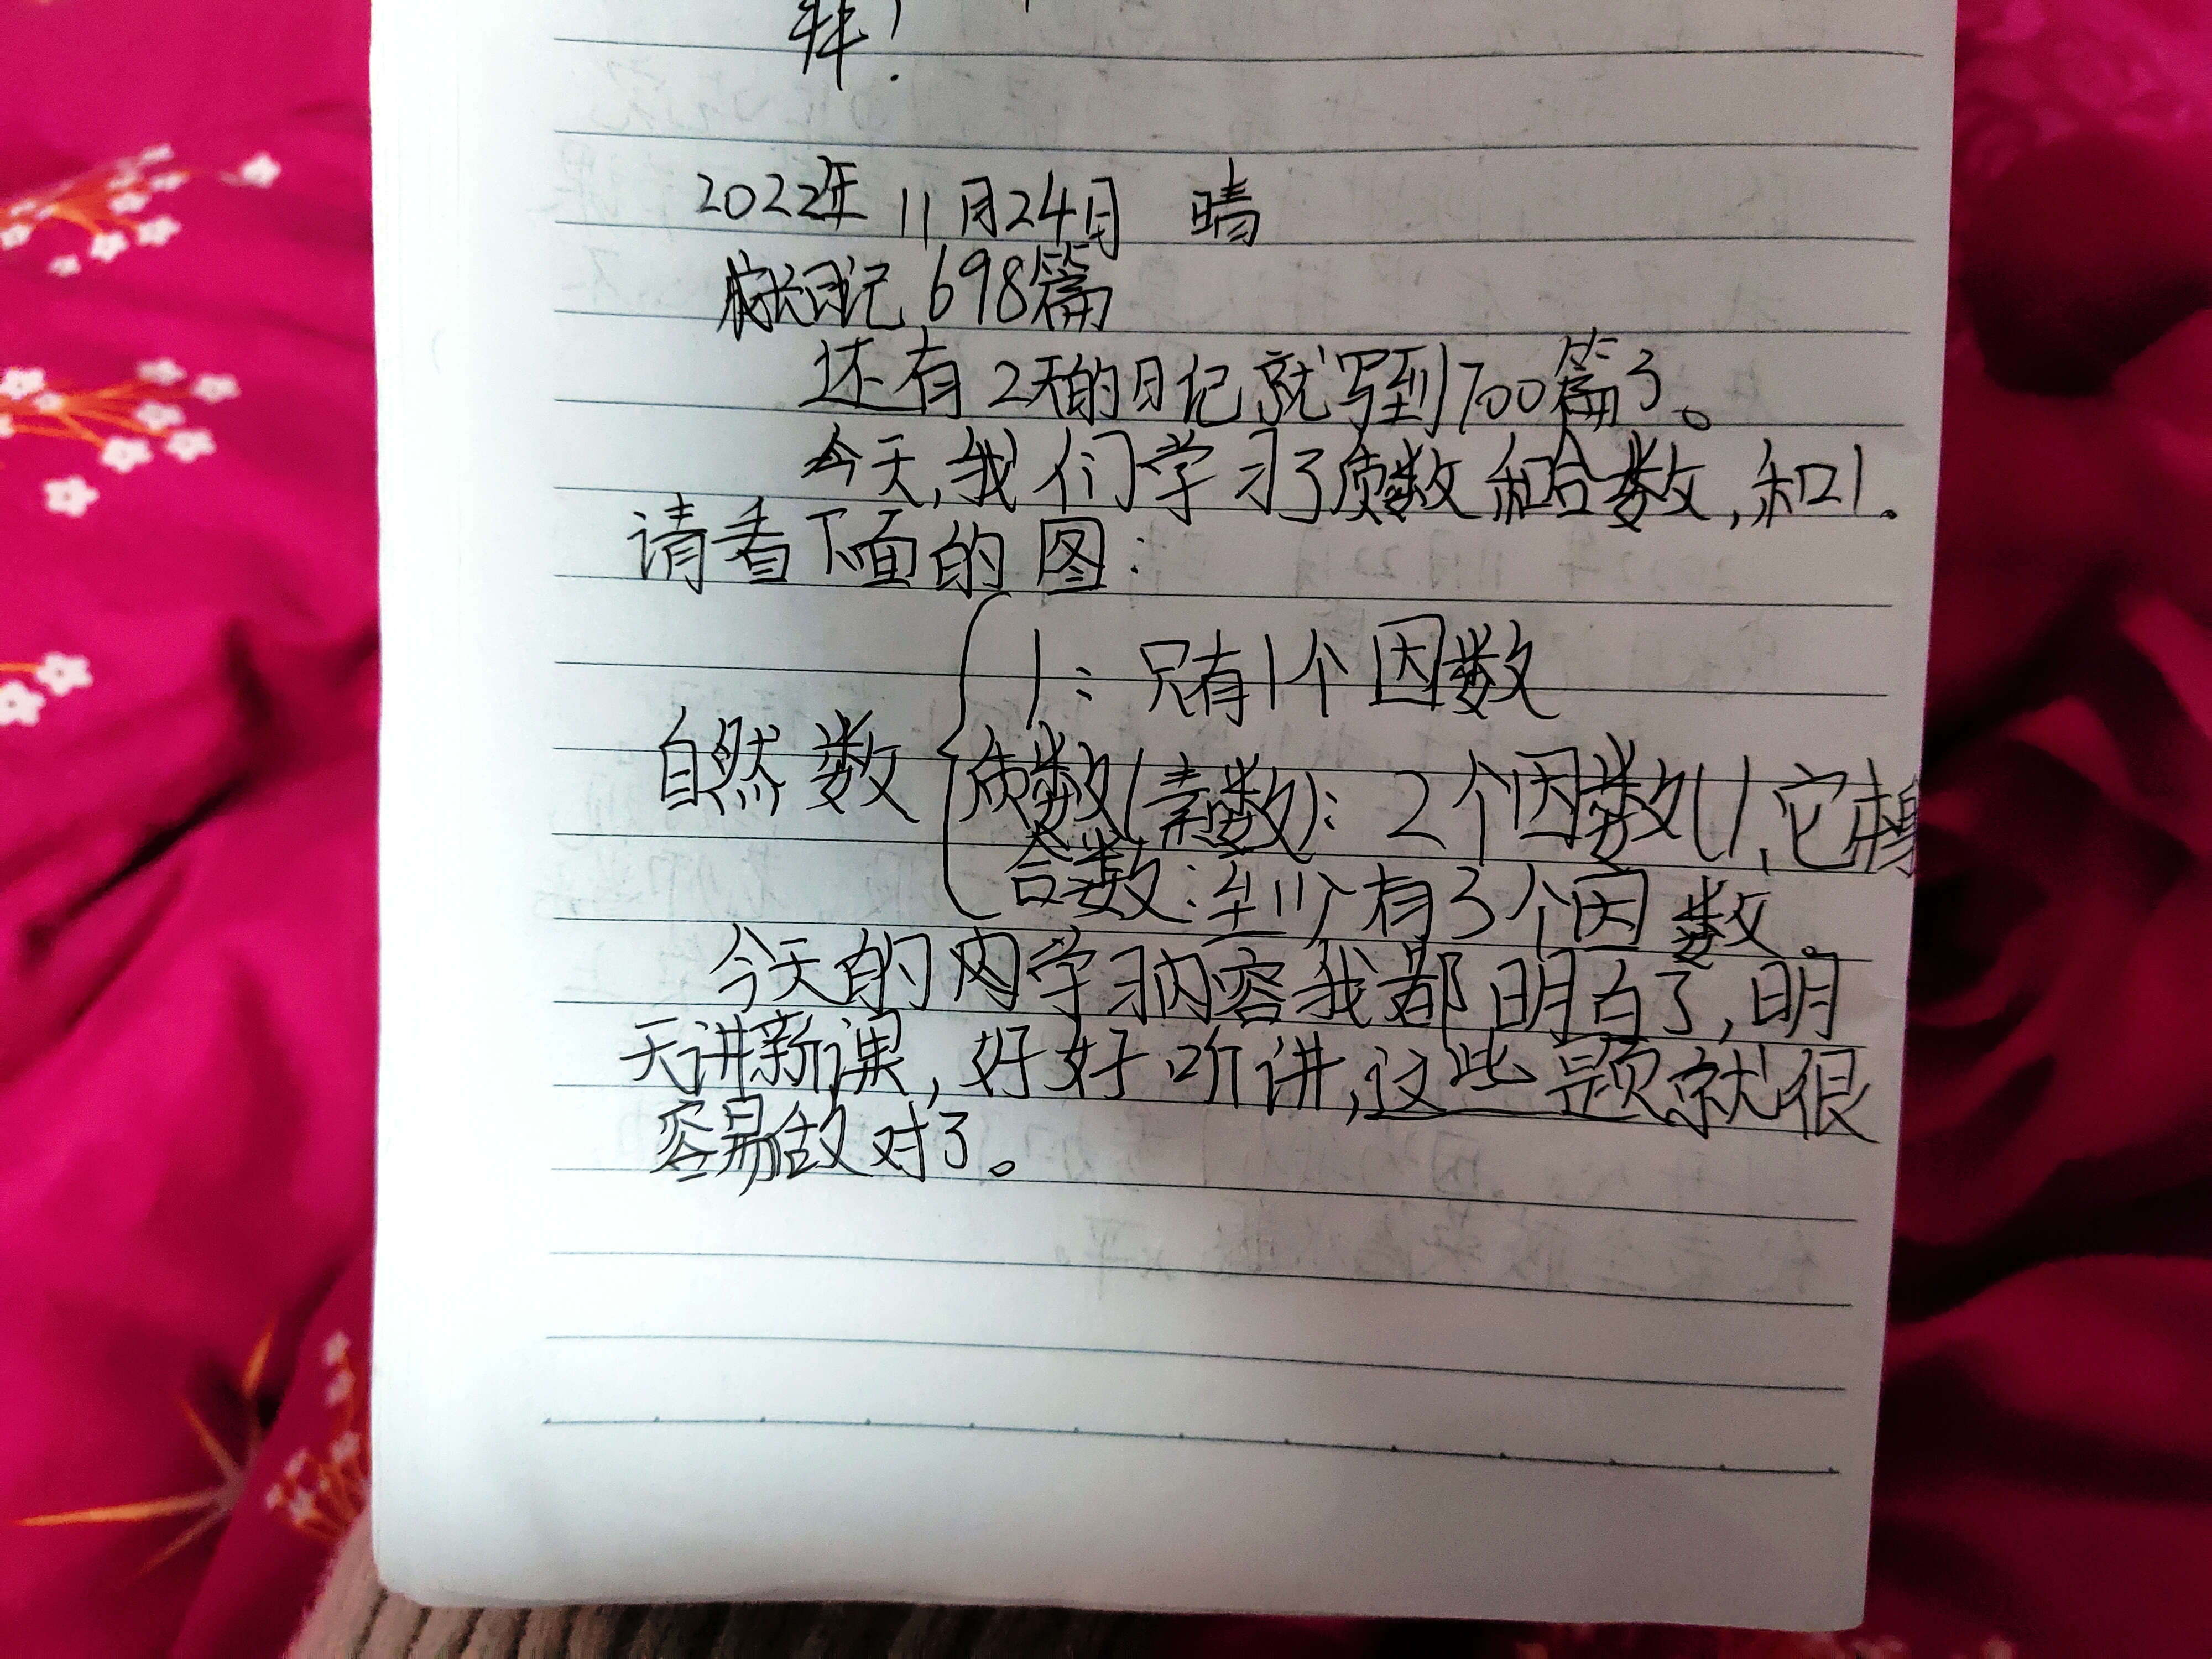 样!
2022年 11月24日 晴
成长日记 698篇
还有2天的日记就写到700篇了。
今天,我们学习了质数和合数,和1.
请看下面的图:
1:只有1个因数
自然数
质数(素数):2个因数(1、它本身
合数:至少有3个因数。
今天的内学习内容我都明白了,明
天讲新课,好好听讲,这些题就很
容易做对了。